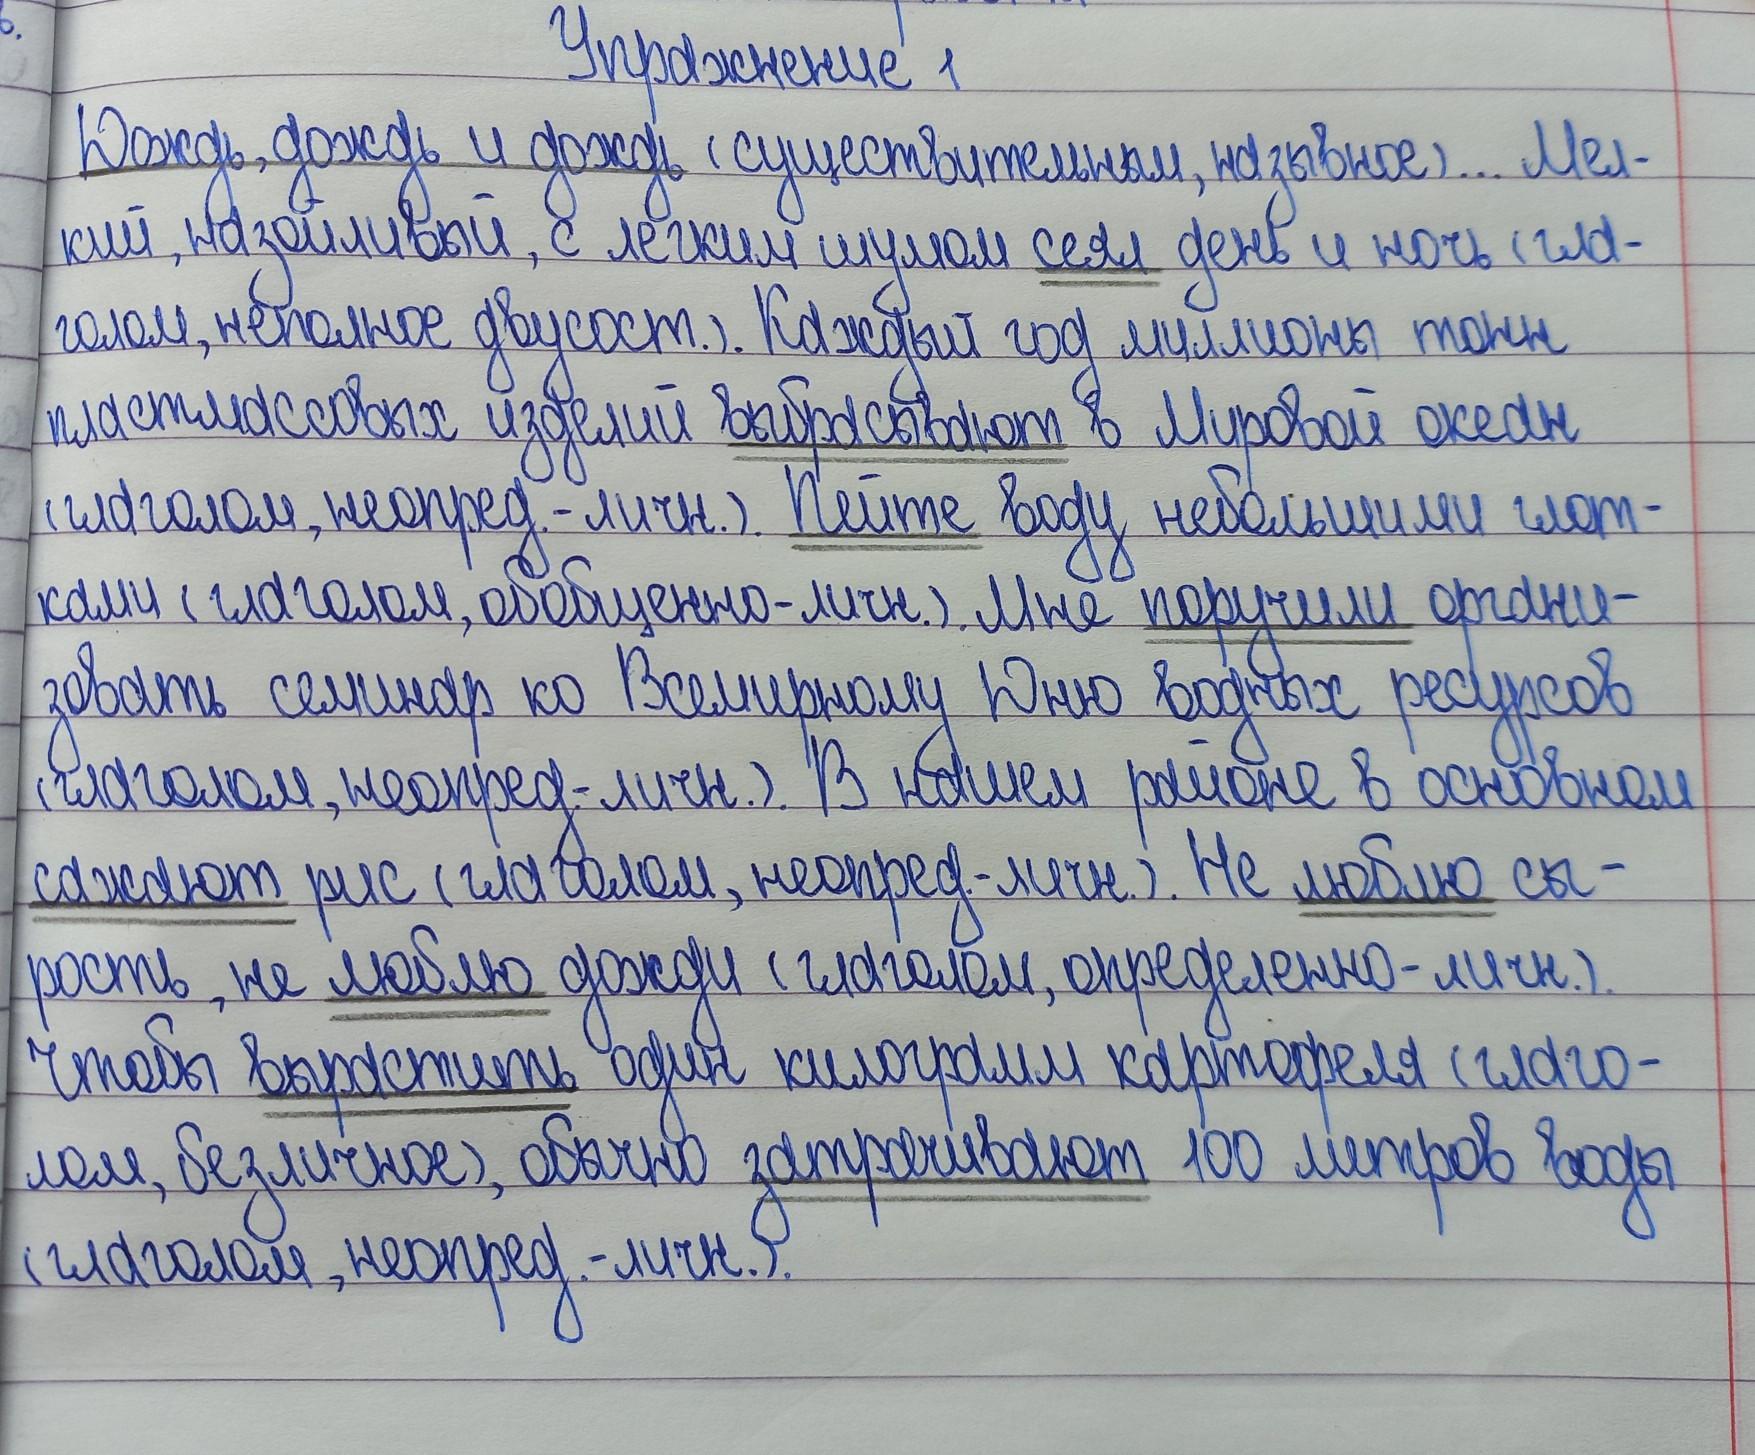 Упражнение 1
Дождь, дождь и дождь (существительным, назывное)... Мел-
кий, назойливый, с легким шумом сеял день и ночь (гла-
голом, неполное двусост.). Каждый год миллионы тонн
пластмассовых изделий выбрасывают в Мировой океан
(глаголом, неопред.-личн.). Пейте воду небольшими глот-
ками (глаголом, обобщенно-личн.). Мне поручили органи-
зовать семинар ко Всемирному Дню водных ресурсов
(глаголом, неопред.-личн.). В нашем районе в основном
сажают рис (глаголом, неопред.-личн.). Не люблю сы-
рость, не люблю дожди (глаголом, определенно-личн.).
Чтобы вырастить один килограмм картофеля (глаго-
лом, безличное), обычно затрачивают 100 литров воды
(глаголом, неопред.-личн.).